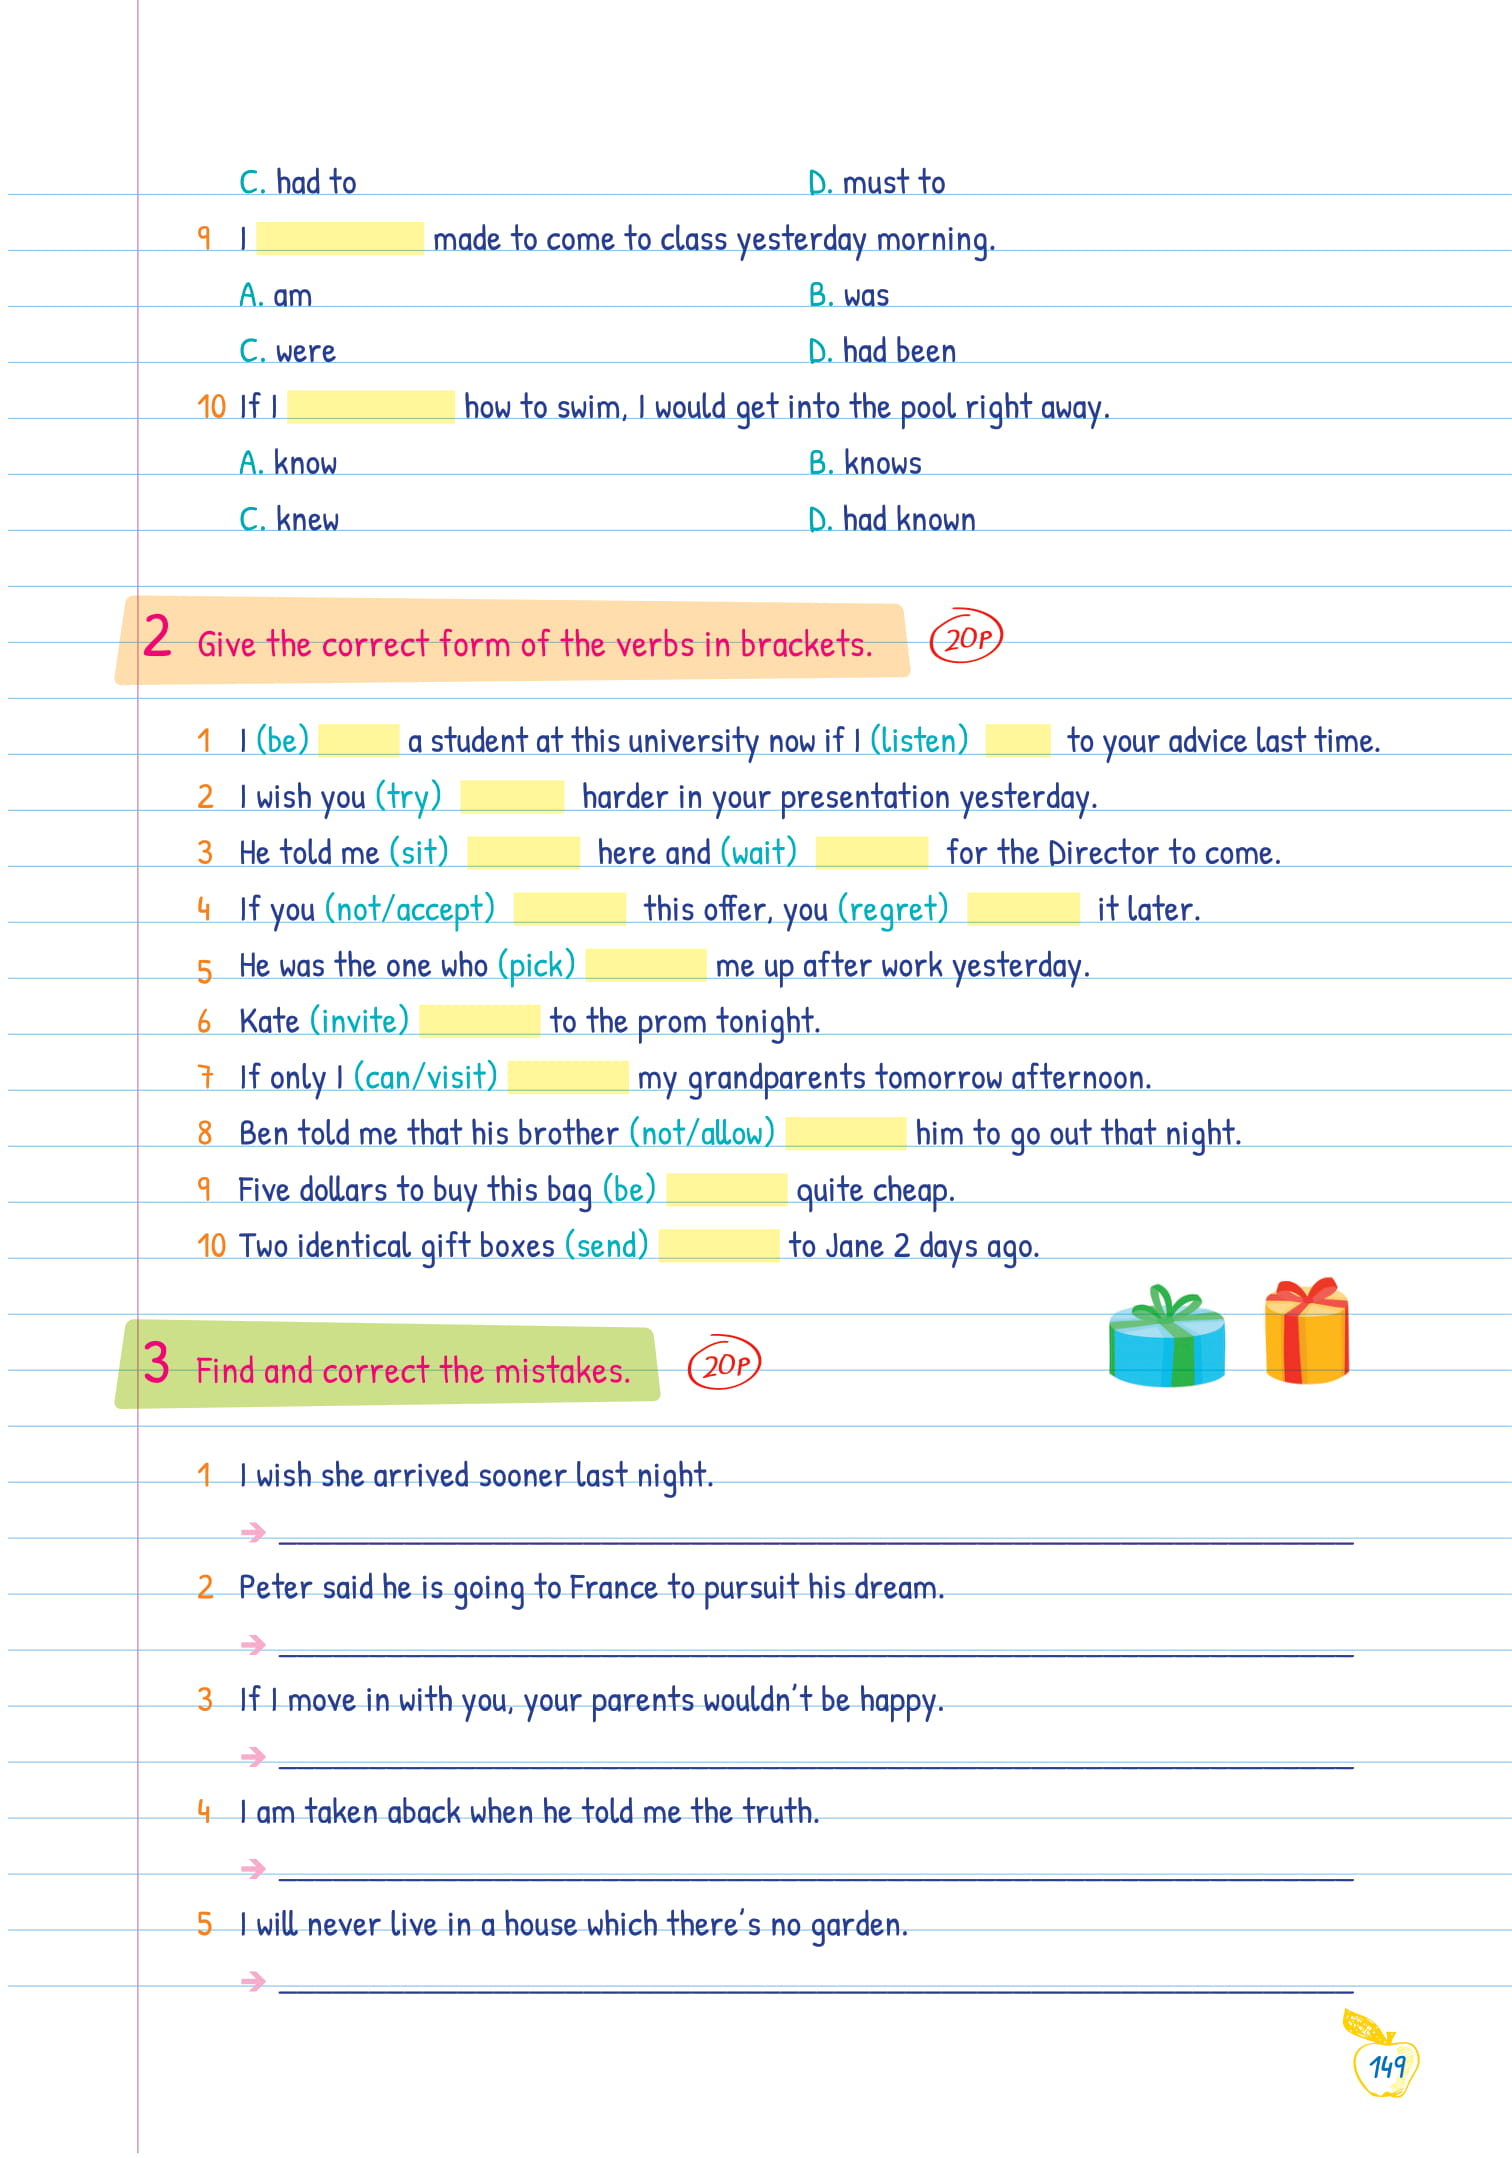 C. had to D. must to
9 I made to come to class yesterday morning.
A. am B. was
C. were D. had been
10 If I how to swim, I would get into the pool right away.
A. know B. knows
C. knew D. had known
2 Give the correct form of the verbs in brackets. 20P
1 I (be) a student at this university now if I (listen) to your advice last time.
2 I wish you (try) harder in your presentation yesterday.
3 He told me (sit) here and (wait) for the Director to come.
4 If you (not/accept) this offer, you (regret) it later.
5 He was the one who (pick) me up after work yesterday.
6 Kate (invite) to the prom tonight.
7 If only I (can/visit) my grandparents tomorrow afternoon.
8 Ben told me that his brother (not/allow) him to go out that night.
9 Five dollars to buy this bag (be) quite cheap.
10 Two identical gift boxes (send) to Jane 2 days ago.
3 Find and correct the mistakes. 20P
1 I wish she arrived sooner last night.
➔
2 Peter said he is going to France to pursuit his dream.
➔
3 If I move in with you, your parents wouldn't be happy.
➔
4 I am taken aback when he told me the truth.
➔
5 I will never live in a house which there's no garden.
➔
149